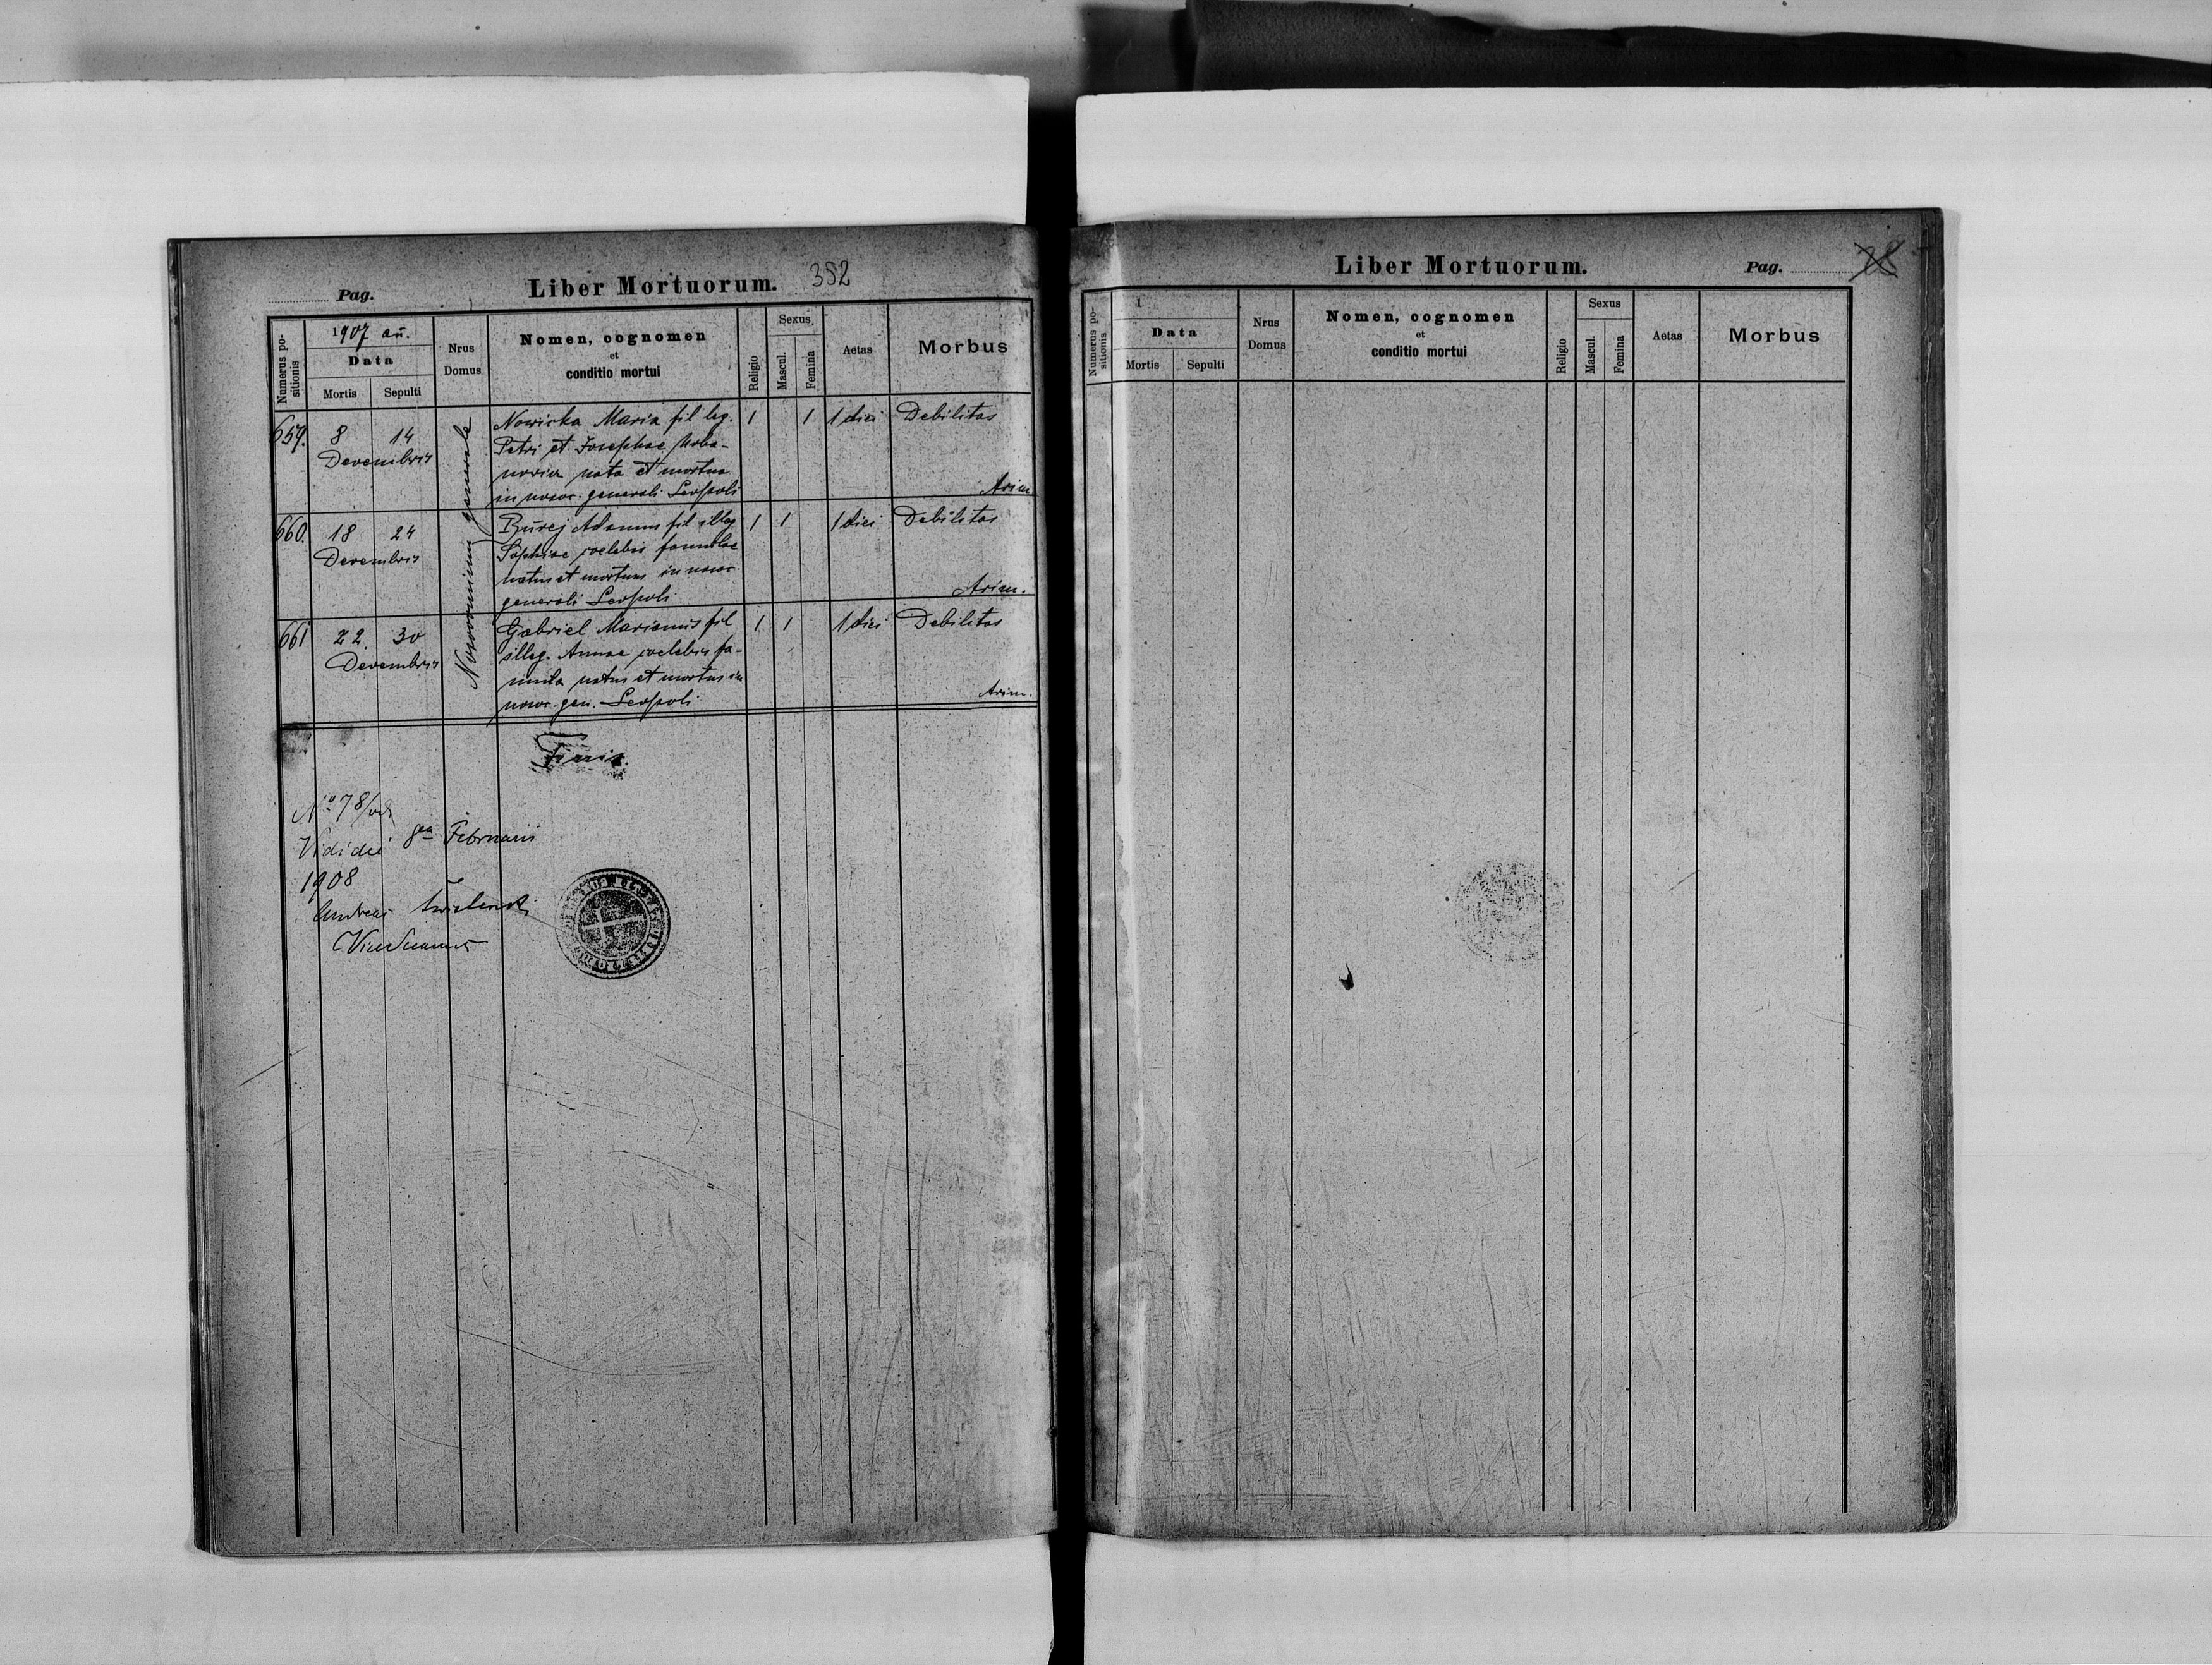 Pag.
Liber Mortuorum. 352
Numerus positionis
1907 an.
Data
Mortis Sepulti
Nrus Domus
Nomen, cognomen
et
conditio mortui
Religio
Sexus
Mascul. Femina
Aetas
Morbus
Nosocomium generale
659. 8 14 Nowicka Maria fil leg. 1 1 1 diei Debilitas
Decembris Petri et Josephae Urba-
novicz nata et mortua
in nosoc. generali Leopoli
660. 18 24 Burej Adamus fil illeg 1 1 1 diei Debilitas
Decembris Sophiae coelebis famulae
natus et mortuus in nosoc.
generali Leopoli
661 22 30 Gabriel Marianus fil 1 1 1 diei Debilitas
Decembris illeg. Annae coelebis fa-
mula natus et mortuus in
nosoc. gen. Leopoli
Finis.
No 78/
Vidi die 8va Februarii
1908
Andreas
Liber Mortuorum.
Pag.
Numerus positionis
1
Data
Mortis Sepulti
Nrus Domus
Nomen, cognomen
et
conditio mortui
Religio
Sexus
Mascul. Femina
Aetas
Morbus